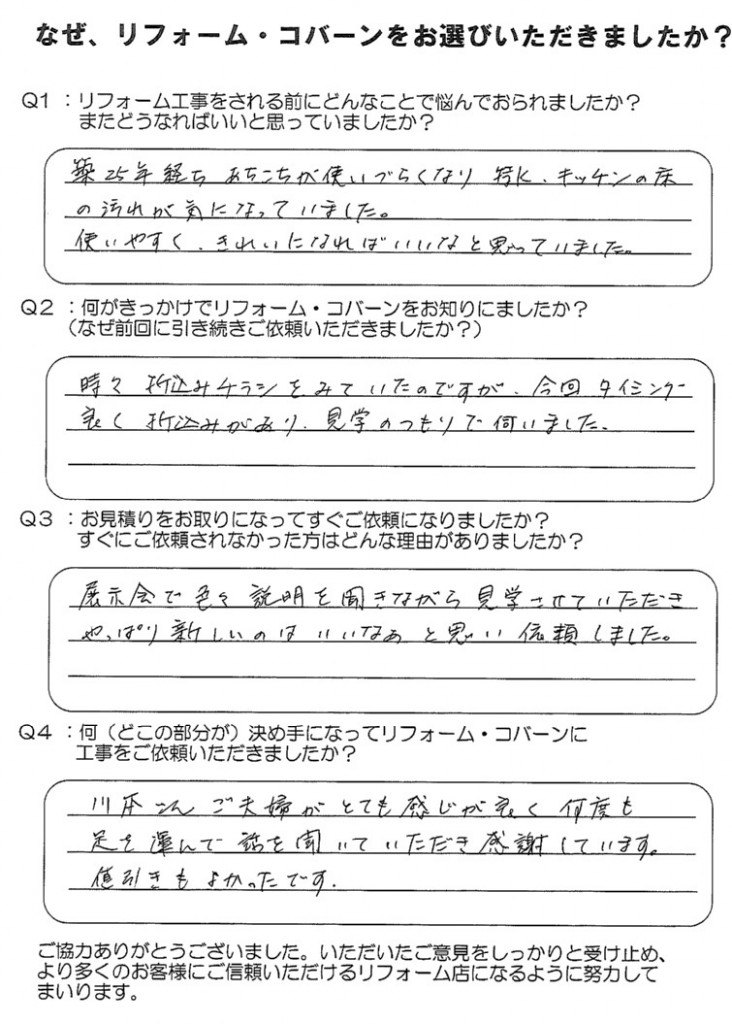 なぜ、リフォーム・コバーンをお選びいただきましたか？
Q1 ：リフォーム工事をされる前にどんなことで悩んでおられましたか？
またどうなればいいと思っていましたか？
築25年経ち あちこちが使いづらくなり 特に、キッチンの床
の汚れが気になっていました。
使いやすく、きれいになればいいなと思っていました。
Q2 ：何がきっかけでリフォーム・コバーンをお知りにましたか？
（なぜ前回に引き続きご依頼いただきましたか？）
時々 折込みチラシをみていたのですが、今回 タイミング
良く 折込みがあり、見学のつもりで伺いました。
Q3 ：お見積りをお取りになってすぐご依頼になりましたか？
すぐにご依頼されなかった方はどんな理由がありましたか？
展示会で色々 説明を聞きながら見学させていただき
やっぱり新しいのは いいなぁ と思い 依頼しました。
Q4 ：何（どこの部分が）決め手になってリフォーム・コバーンに
工事をご依頼いただきましたか？
川本さん ご夫婦が とても感じが良く 何度も
足を運んで 話を聞いていただき感謝しています。
値引きもよかったです.
ご協力ありがとうございました。いただいたご意見をしっかりと受け止め、
より多くのお客様にご信頼いただけるリフォーム店になるように努力して
まいります。